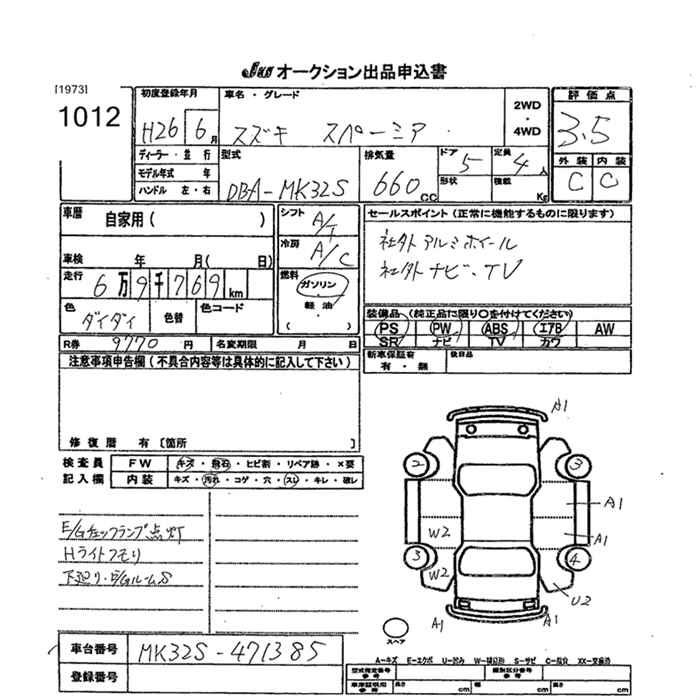 Jus オークション出品申込書
[1973]
1012
初度登録年月
H26 6月
車名・グレード
スズキ スペーシア
2WD
・
4WD
評価点
3.5
外装 内装
C C
ディーラー・並行
モデル年式 年
ハンドル 左・右
型式
DBA-MK32S
排気量
660 CC
ドア 5
形状
定員 4人
積載 Kg
車歴
自家用( )
車検 年 月( 日)
走行
6万9千769km
色
ダイダイ
色替
色コード
シフト A/T
冷房 A/C
燃料
ガソリン
・
軽油
( )
セールスポイント(正常に機能するものに限ります)
社外アルミホイール
社外ナビ・TV
装備品(純正品に限り○を付けてください)
PS PW ABS エアB AW
SR ナビ TV カワ
R券 9770円 名変期限 月 日
新車保証有 有・無
後日品
注意事項申告欄(不具合内容等は具体的に記入して下さい)
修復歴 有〔箇所 〕
検査員
記入欄
FW キズ・飛石・ヒビ割・リペア跡・×要
内装 キズ・汚れ・コゲ・穴・スレ・キレ・破レ
E/Gチェックランプ点灯
Hライトクモリ
下廻り・E/GルームS
A1
2 3
A1
W2 A1
3 4
W2 U2
A1 A1
スペア
車台番号 MK32S-471385
登録番号
A-キズ E-エクボ U-凹み W-補修跡 S-サビ C-腐食 XX-交換済
型式指定番号 参考
類別区分番号 参考
車庫証明用 参考
長さ cm 幅 cm 高さ cm